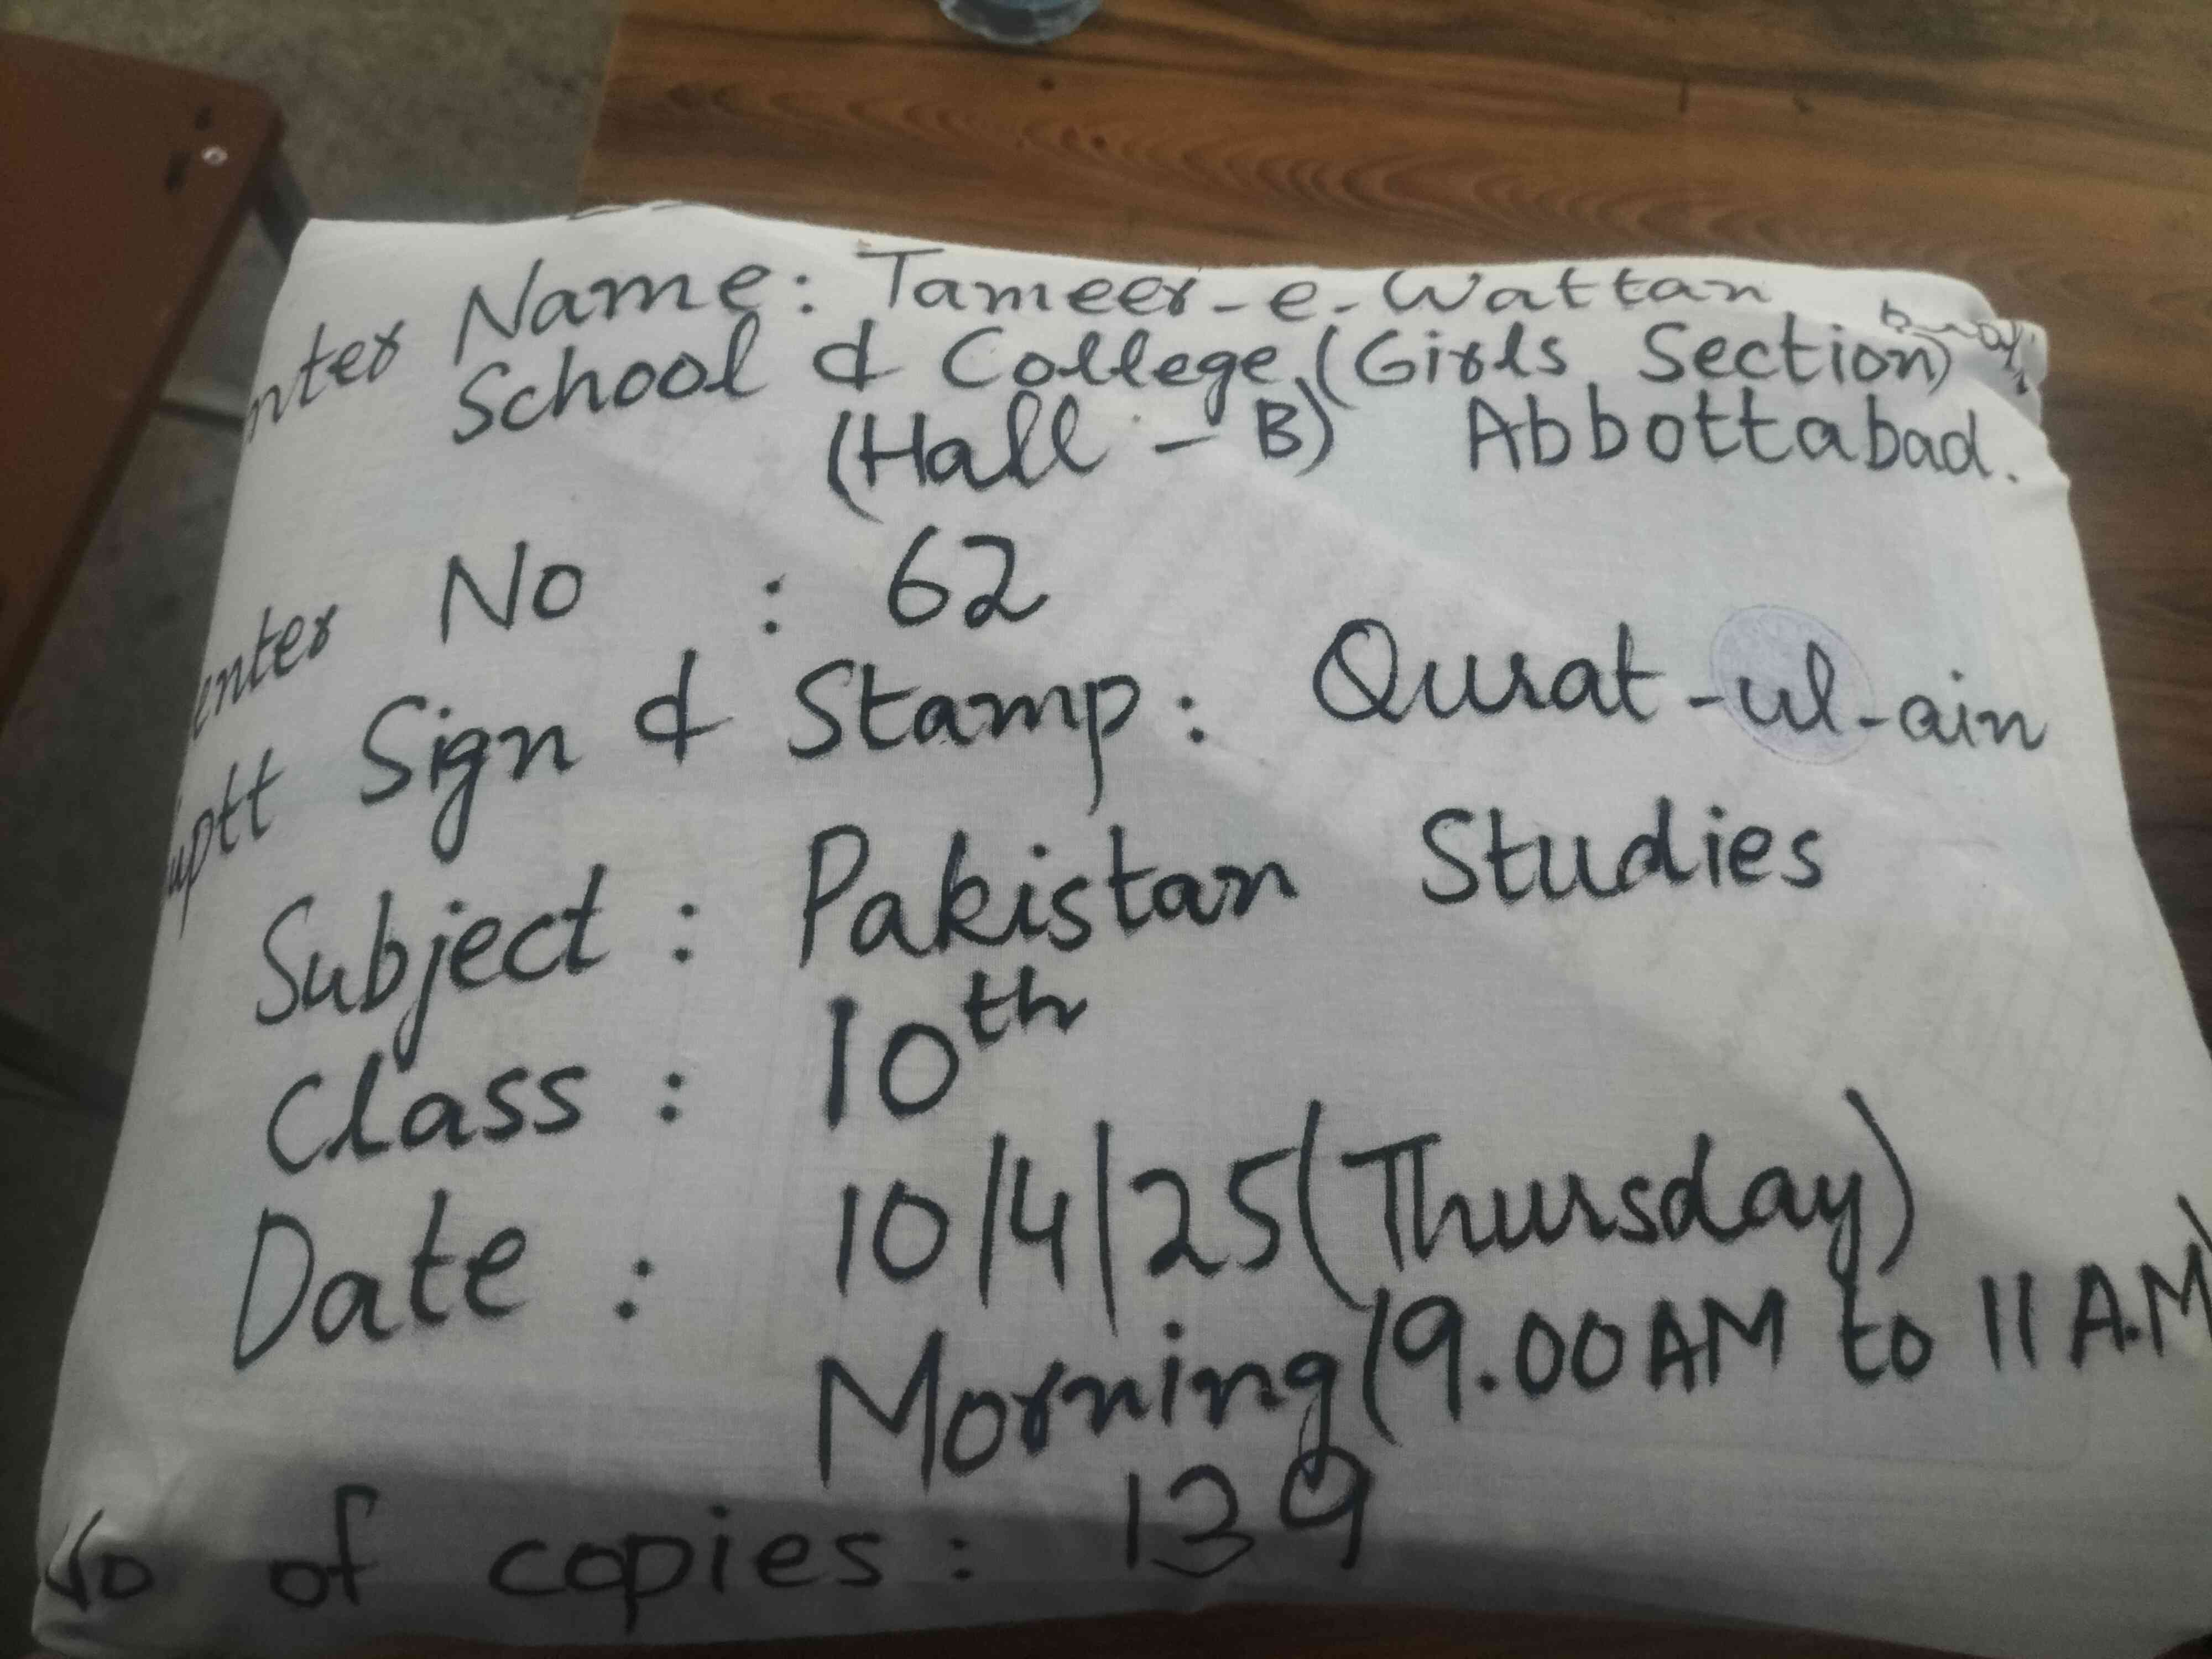 nter Name: Tameer-e-Wattan
School & College (Girls Section)
(Hall - B) Abbottabad.
enter No : 62
uptt Sign & Stamp: Qurat-ul-ain
Subject : Pakistan Studies
Class : 10th
Date : 10/4/25 (Thursday)
Morning (9.00 AM to 11 A.M)
No of copies : 139